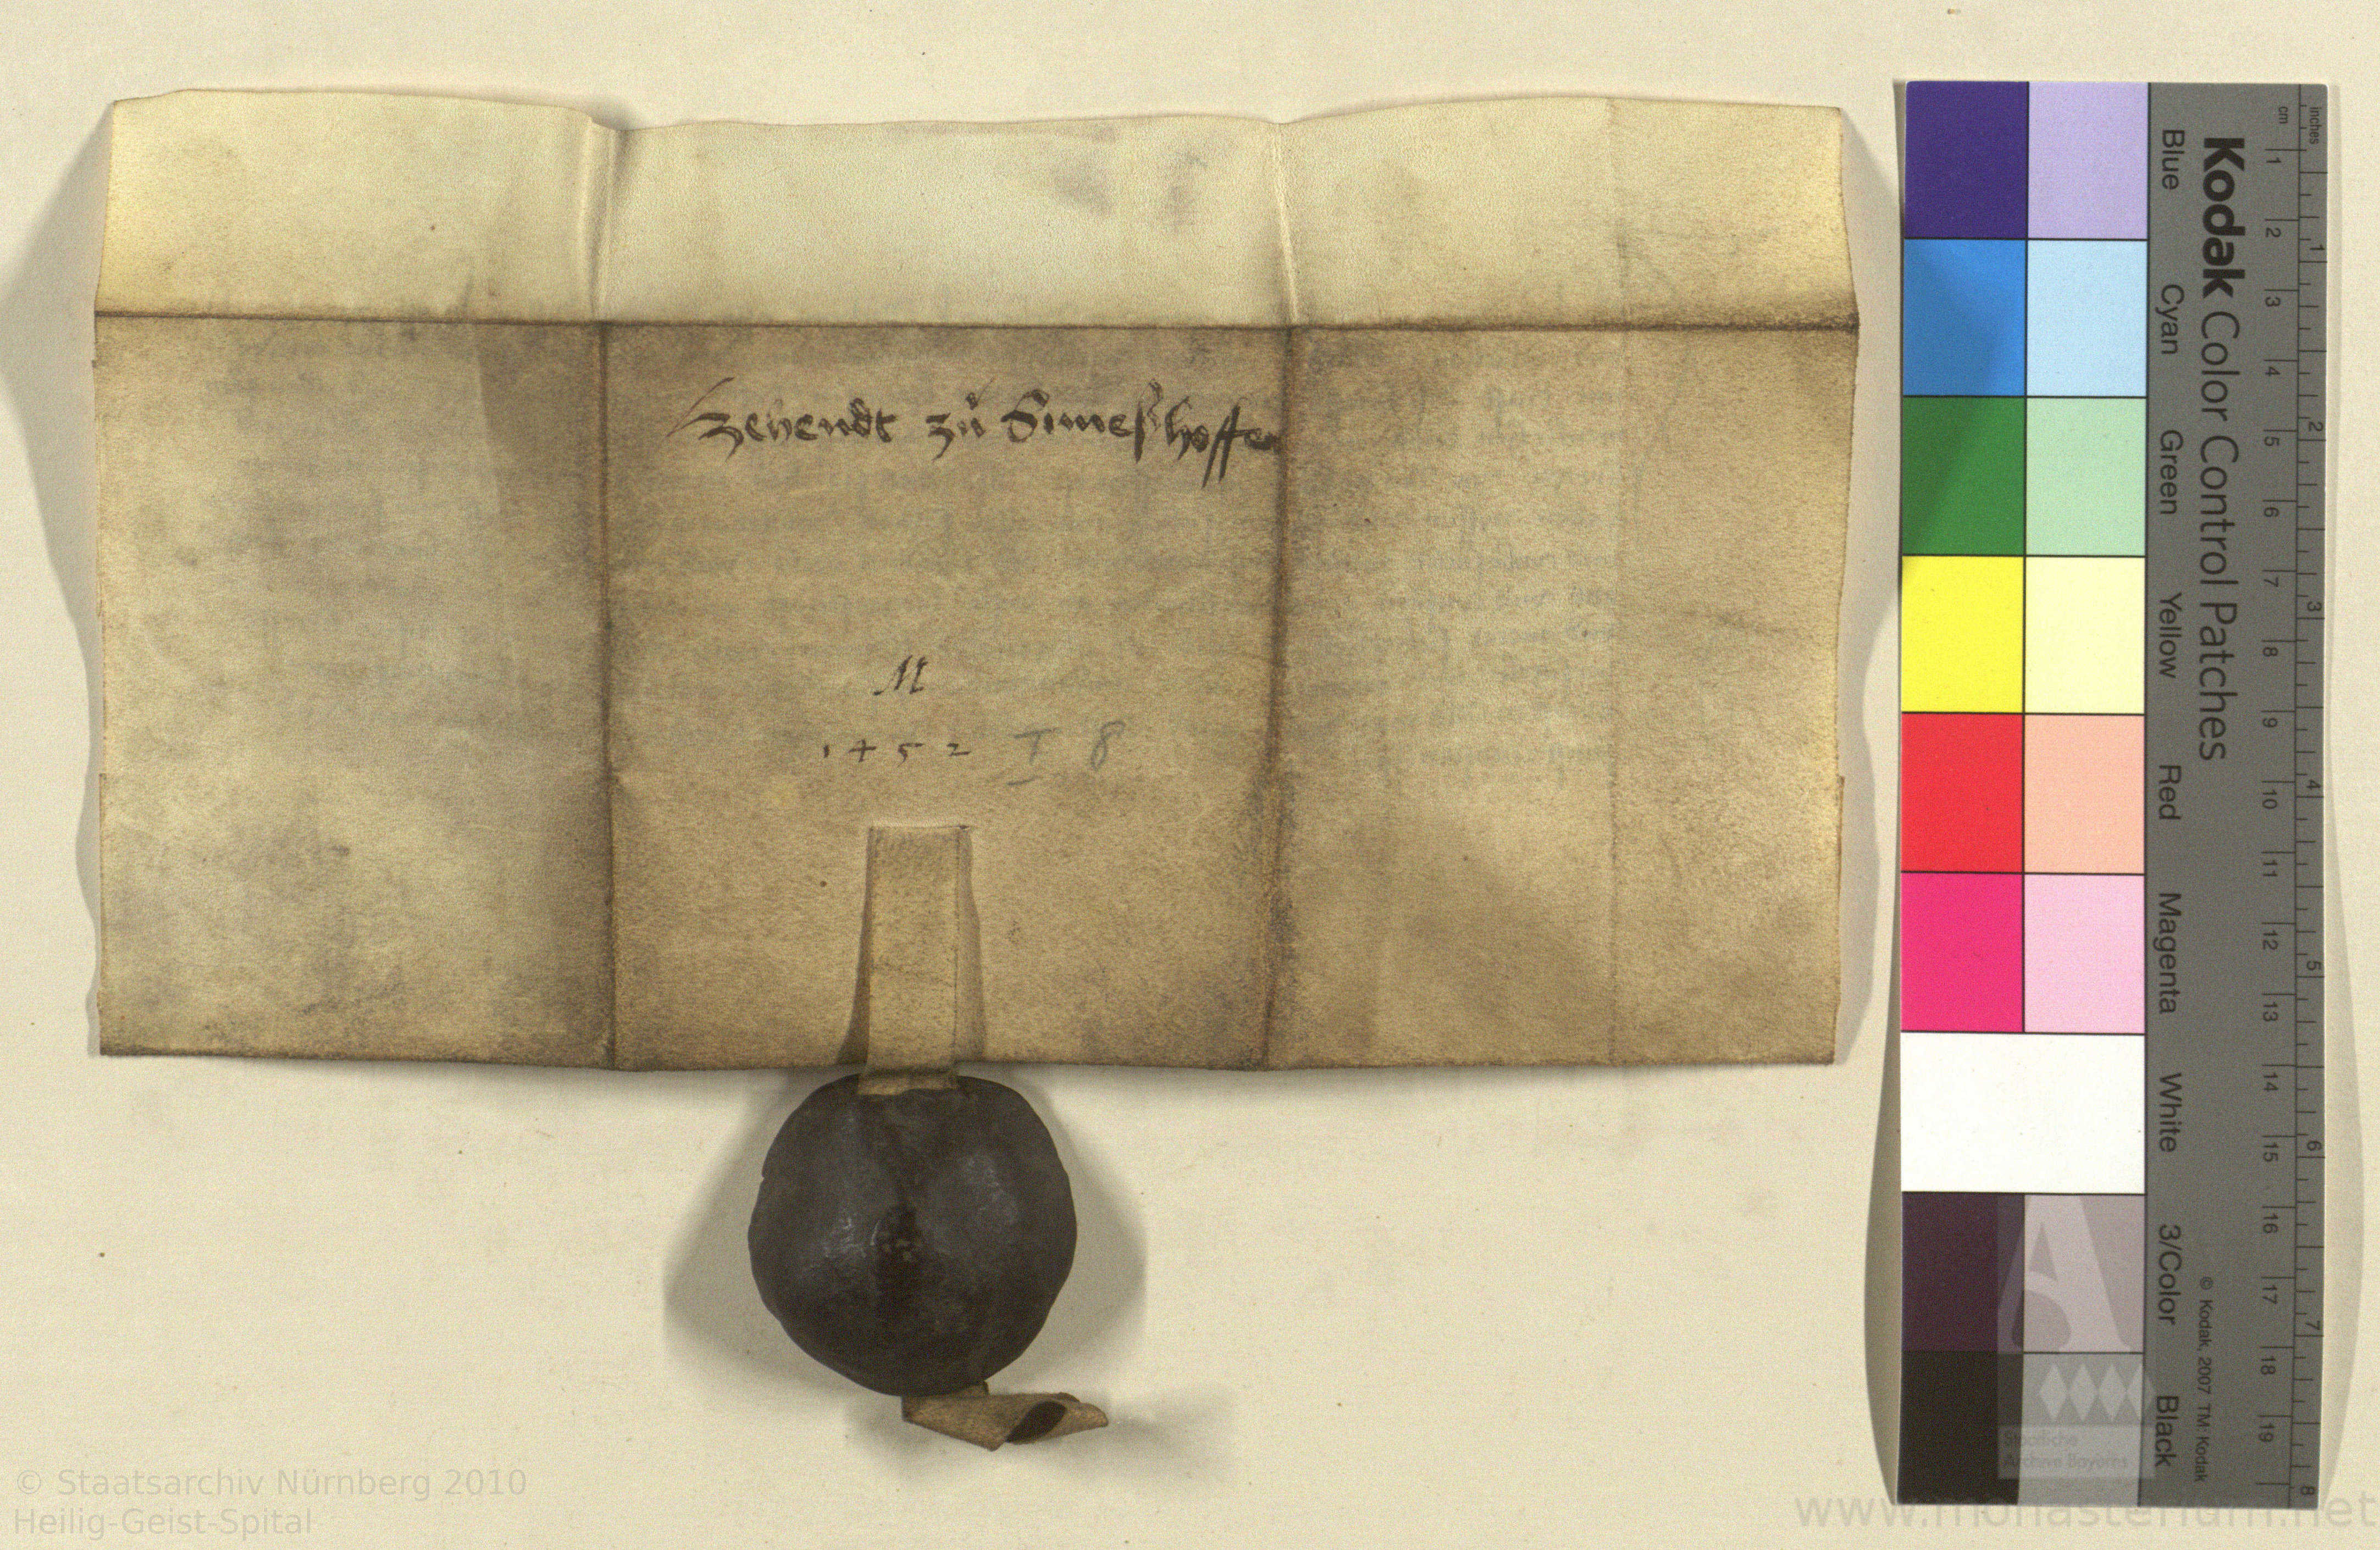 Zehendt zu Simeshoffen
M
1452 I 8
Kodak Color Control Patches
Blue Cyan Green Yellow Red Magenta White 3/Color Black
© Kodak, 2007 TM: Kodak
cm 1 2 3 4 5 6 7 8 9 10 11 12 13 14 15 16 17 18 19
inches 1 2 3 4 5 6 7 8
Staatliche
Archive Bayerns
© Staatsarchiv Nürnberg 2010
Heilig-Geist-Spital
www.monasterium.net